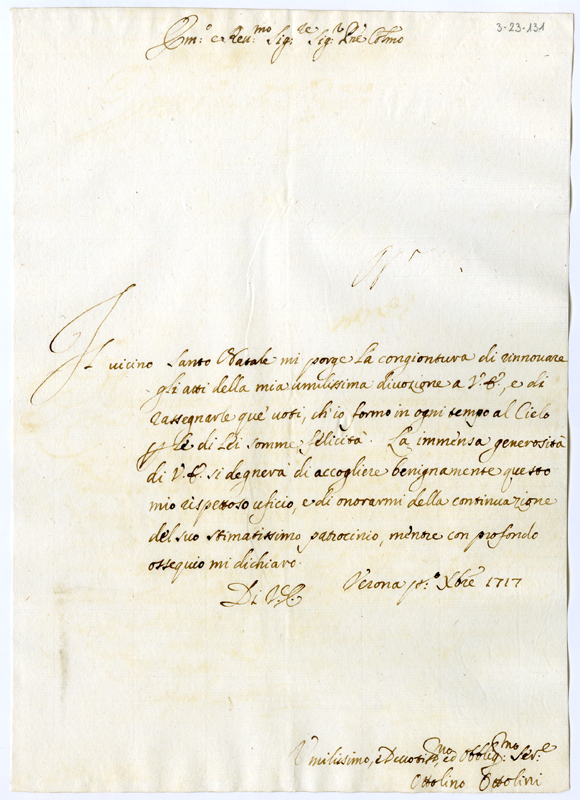 3-23-131
Em:o e Reu:mo Sig:re Sig:r Pne Colmo
Il uicino Santo Natale mi porge la congiontura di rinnouare
gli atti della mia umilissima diuozione a V.E., e di
rassegnarle que' uoti, ch'io formo in ogni tempo al Cielo
p le di Lei somme felicità. La immensa generosità
di V.E. si degnerà di accogliere benignamente questo
mio rispettoso uficio, e di onorarmi della continuazione
del suo stimatissimo patrocinio, mentre con profondo
ossequio mi dichiaro.
Di V.E. Verona p:o Xbre 1717
Vmilissimo, e Deuotiss:mo ed Obblig:mo Ser:e
Ottolino Ottolini